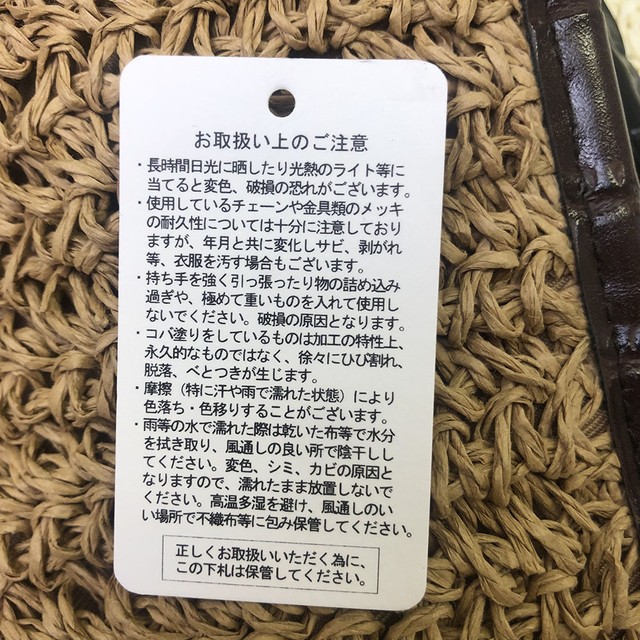 お取扱い上のご注意
・長時間日光に晒したり光熱のライト等に
当てると変色、破損の恐れがございます。
・使用しているチェーンや金具類のメッキ
の耐久性については十分に注意しており
ますが、年月と共に変化しサビ、剥がれ
等、衣服を汚す場合もございます。
・持ち手を強く引っ張ったり物の詰め込み
過ぎや、極めて重いものを入れて使用し
ないでください。破損の原因となります。
・コバ塗りをしているものは加工の特性上、
永久的なものではなく、徐々にひび割れ、
脱落、べとつきが生じます。
・摩擦（特に汗や雨で濡れた状態）により
色落ち・色移りすることがございます。
・雨等の水で濡れた際は乾いた布等で水分
を拭き取り、風通しの良い所で陰干しし
てください。変色、シミ、カビの原因と
なりますので、濡れたまま放置しないで
ください。高温多湿を避け、風通しのい
い場所で不織布等に包み保管してください。
正しくお取扱いいただく為に、
この下札は保管してください。